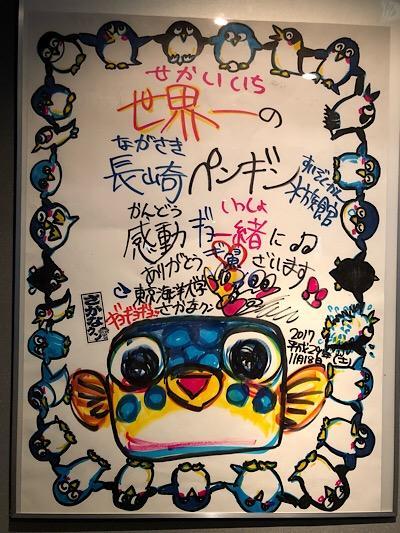 せかいいち
世界一の
ながさき
長崎ペンギン
すいぞくかん
水族館
かんどう いっしょ
感動ギョ一緒に♫
ありがとうギョざいます
東京海洋大学
ギョギョギョ さかなクン
さかなクン
2017
平成29年
11月18日(土)